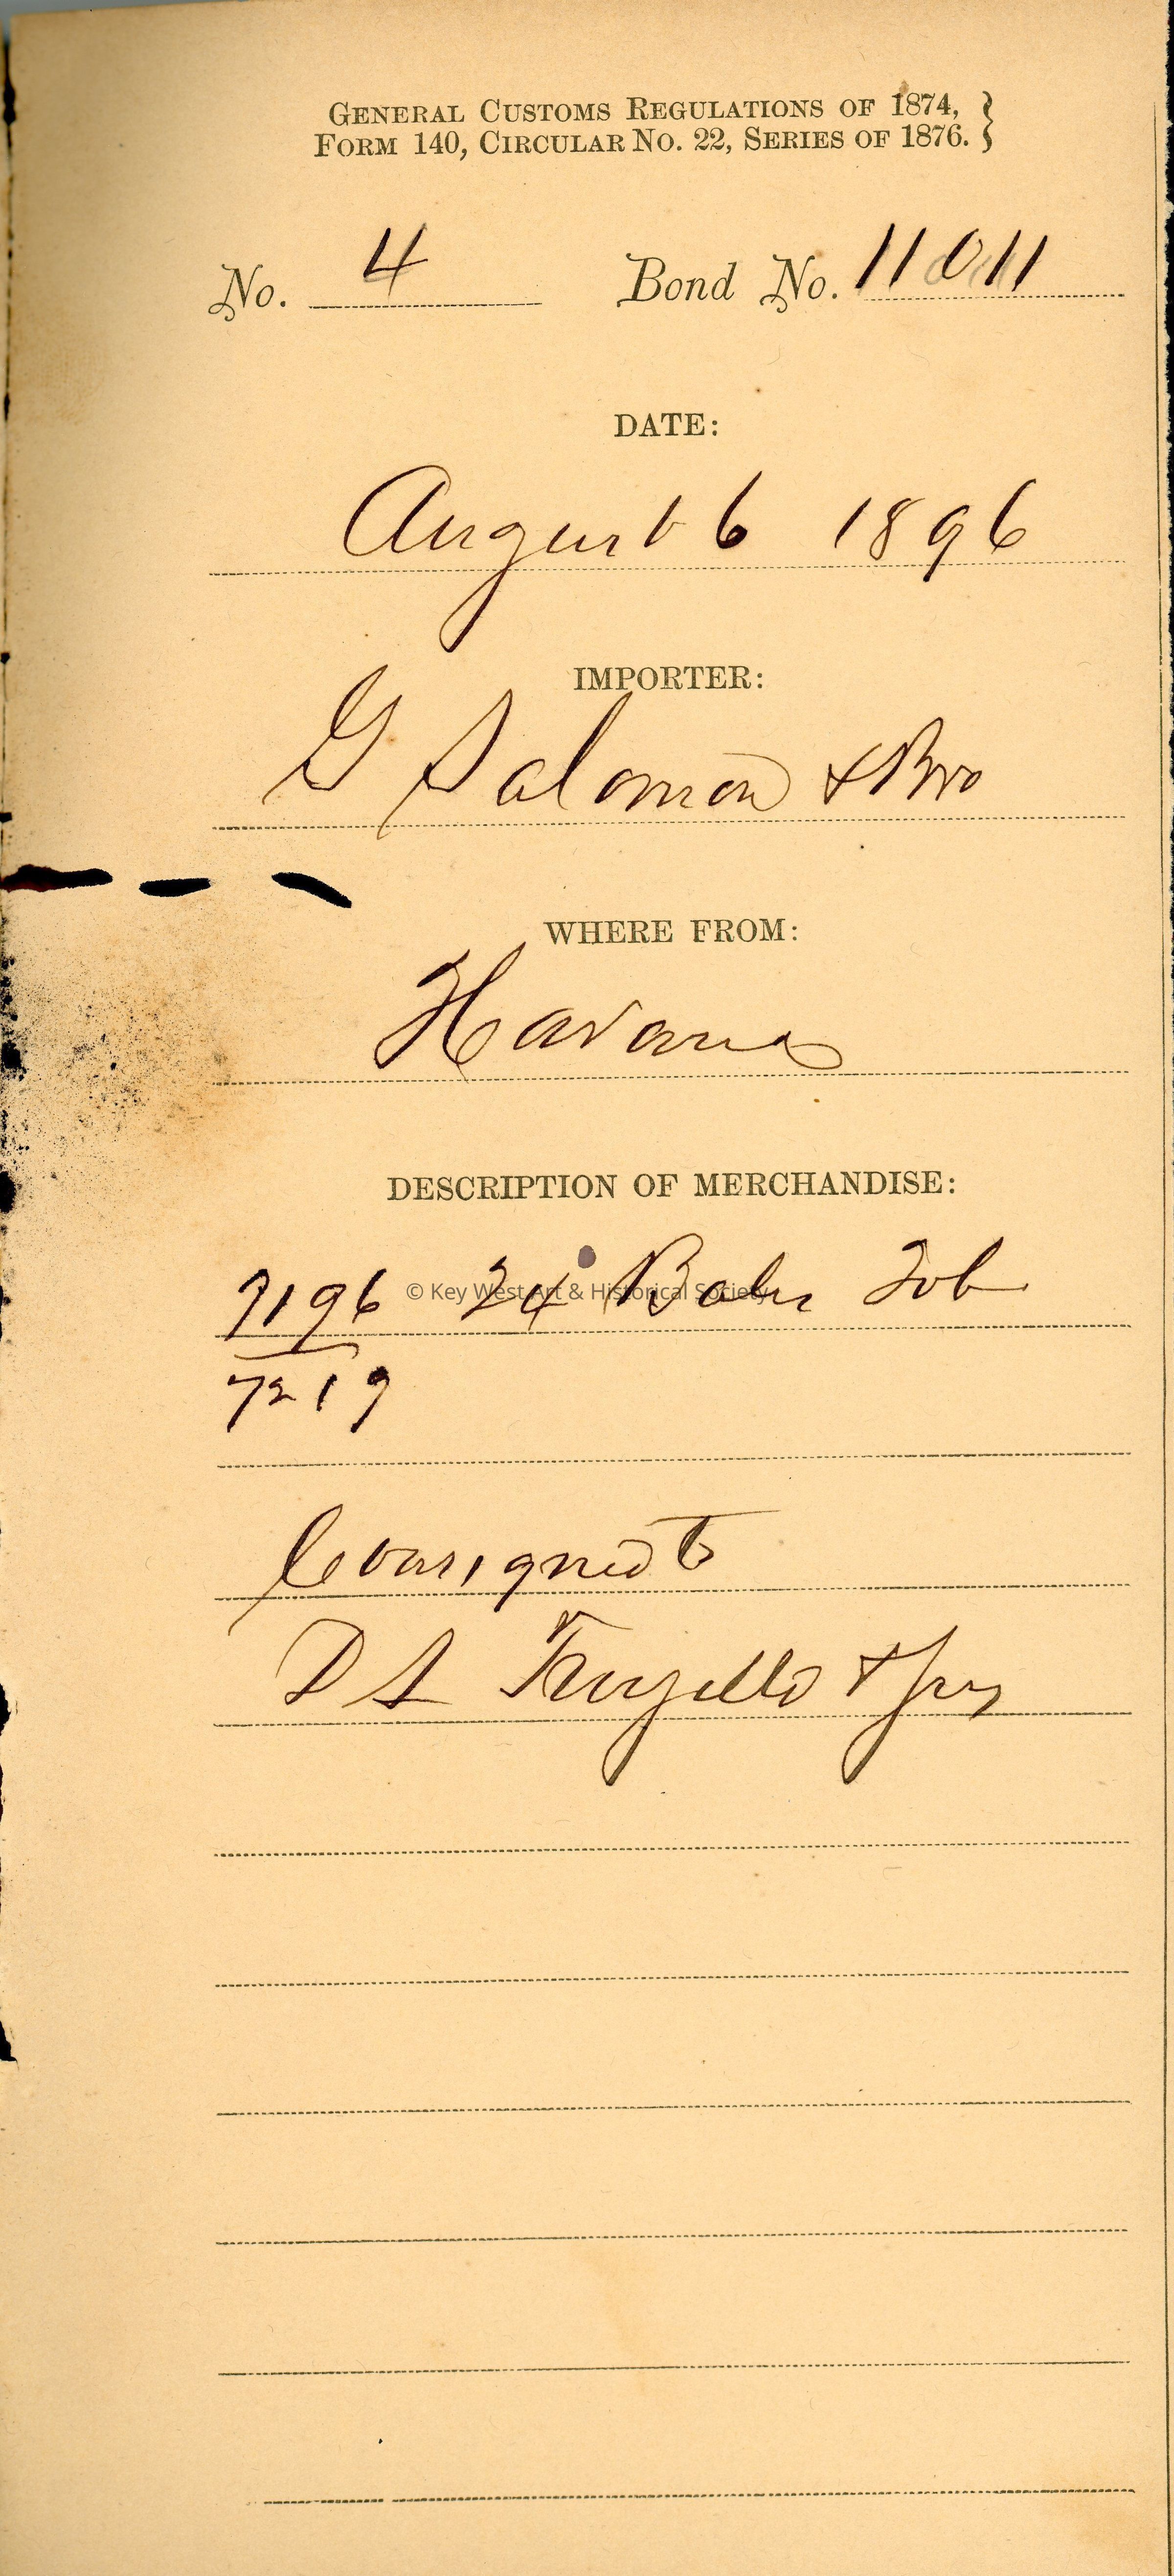 GENERAL CUSTOMS REGULATIONS OF 1874,
FORM 140, CIRCULAR NO. 22, SERIES OF 1876.
No. 4 Bond No. 11011
DATE:
August 6 1896
IMPORTER:
G Salomon & Bro
WHERE FROM:
Havana
DESCRIPTION OF MERCHANDISE:
7196 24 Bales Tob
© Key West Art & Historical Society
7219
Consigned to
D S Trujillo &